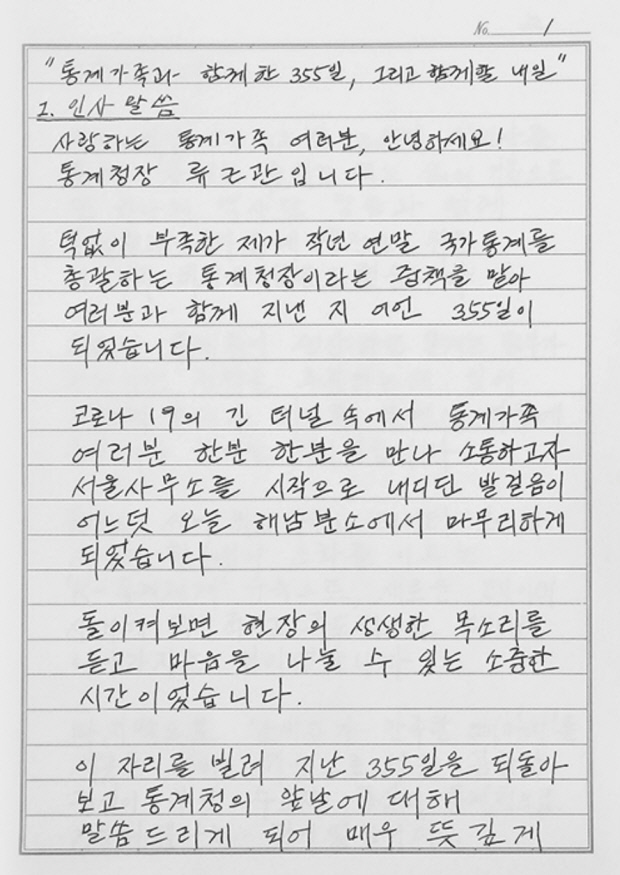 No. 1
"통계가족과 함께한 355일, 그리고 함께할 내일"
1. 인사 말씀
사랑하는 통계가족 여러분, 안녕하세요!
통계청장 류근관입니다.
턱없이 부족한 제가 작년 연말 국가통계를
총괄하는 통계청장이라는 중책을 맡아
여러분과 함께 지낸 지 어언 355일이
되었습니다.
코로나 19의 긴 터널 속에서 통계가족
여러분 한분 한분을 만나 소통하고자
서울사무소를 시작으로 내디딘 발걸음이
어느덧 오늘 해남분소에서 마무리하게
되었습니다.
돌이켜보면 현장의 생생한 목소리를
듣고 마음을 나눌 수 있는 소중한
시간이었습니다.
이 자리를 빌려 지난 355일을 되돌아
보고 통계청의 앞날에 대해
말씀드리게 되어 매우 뜻깊게